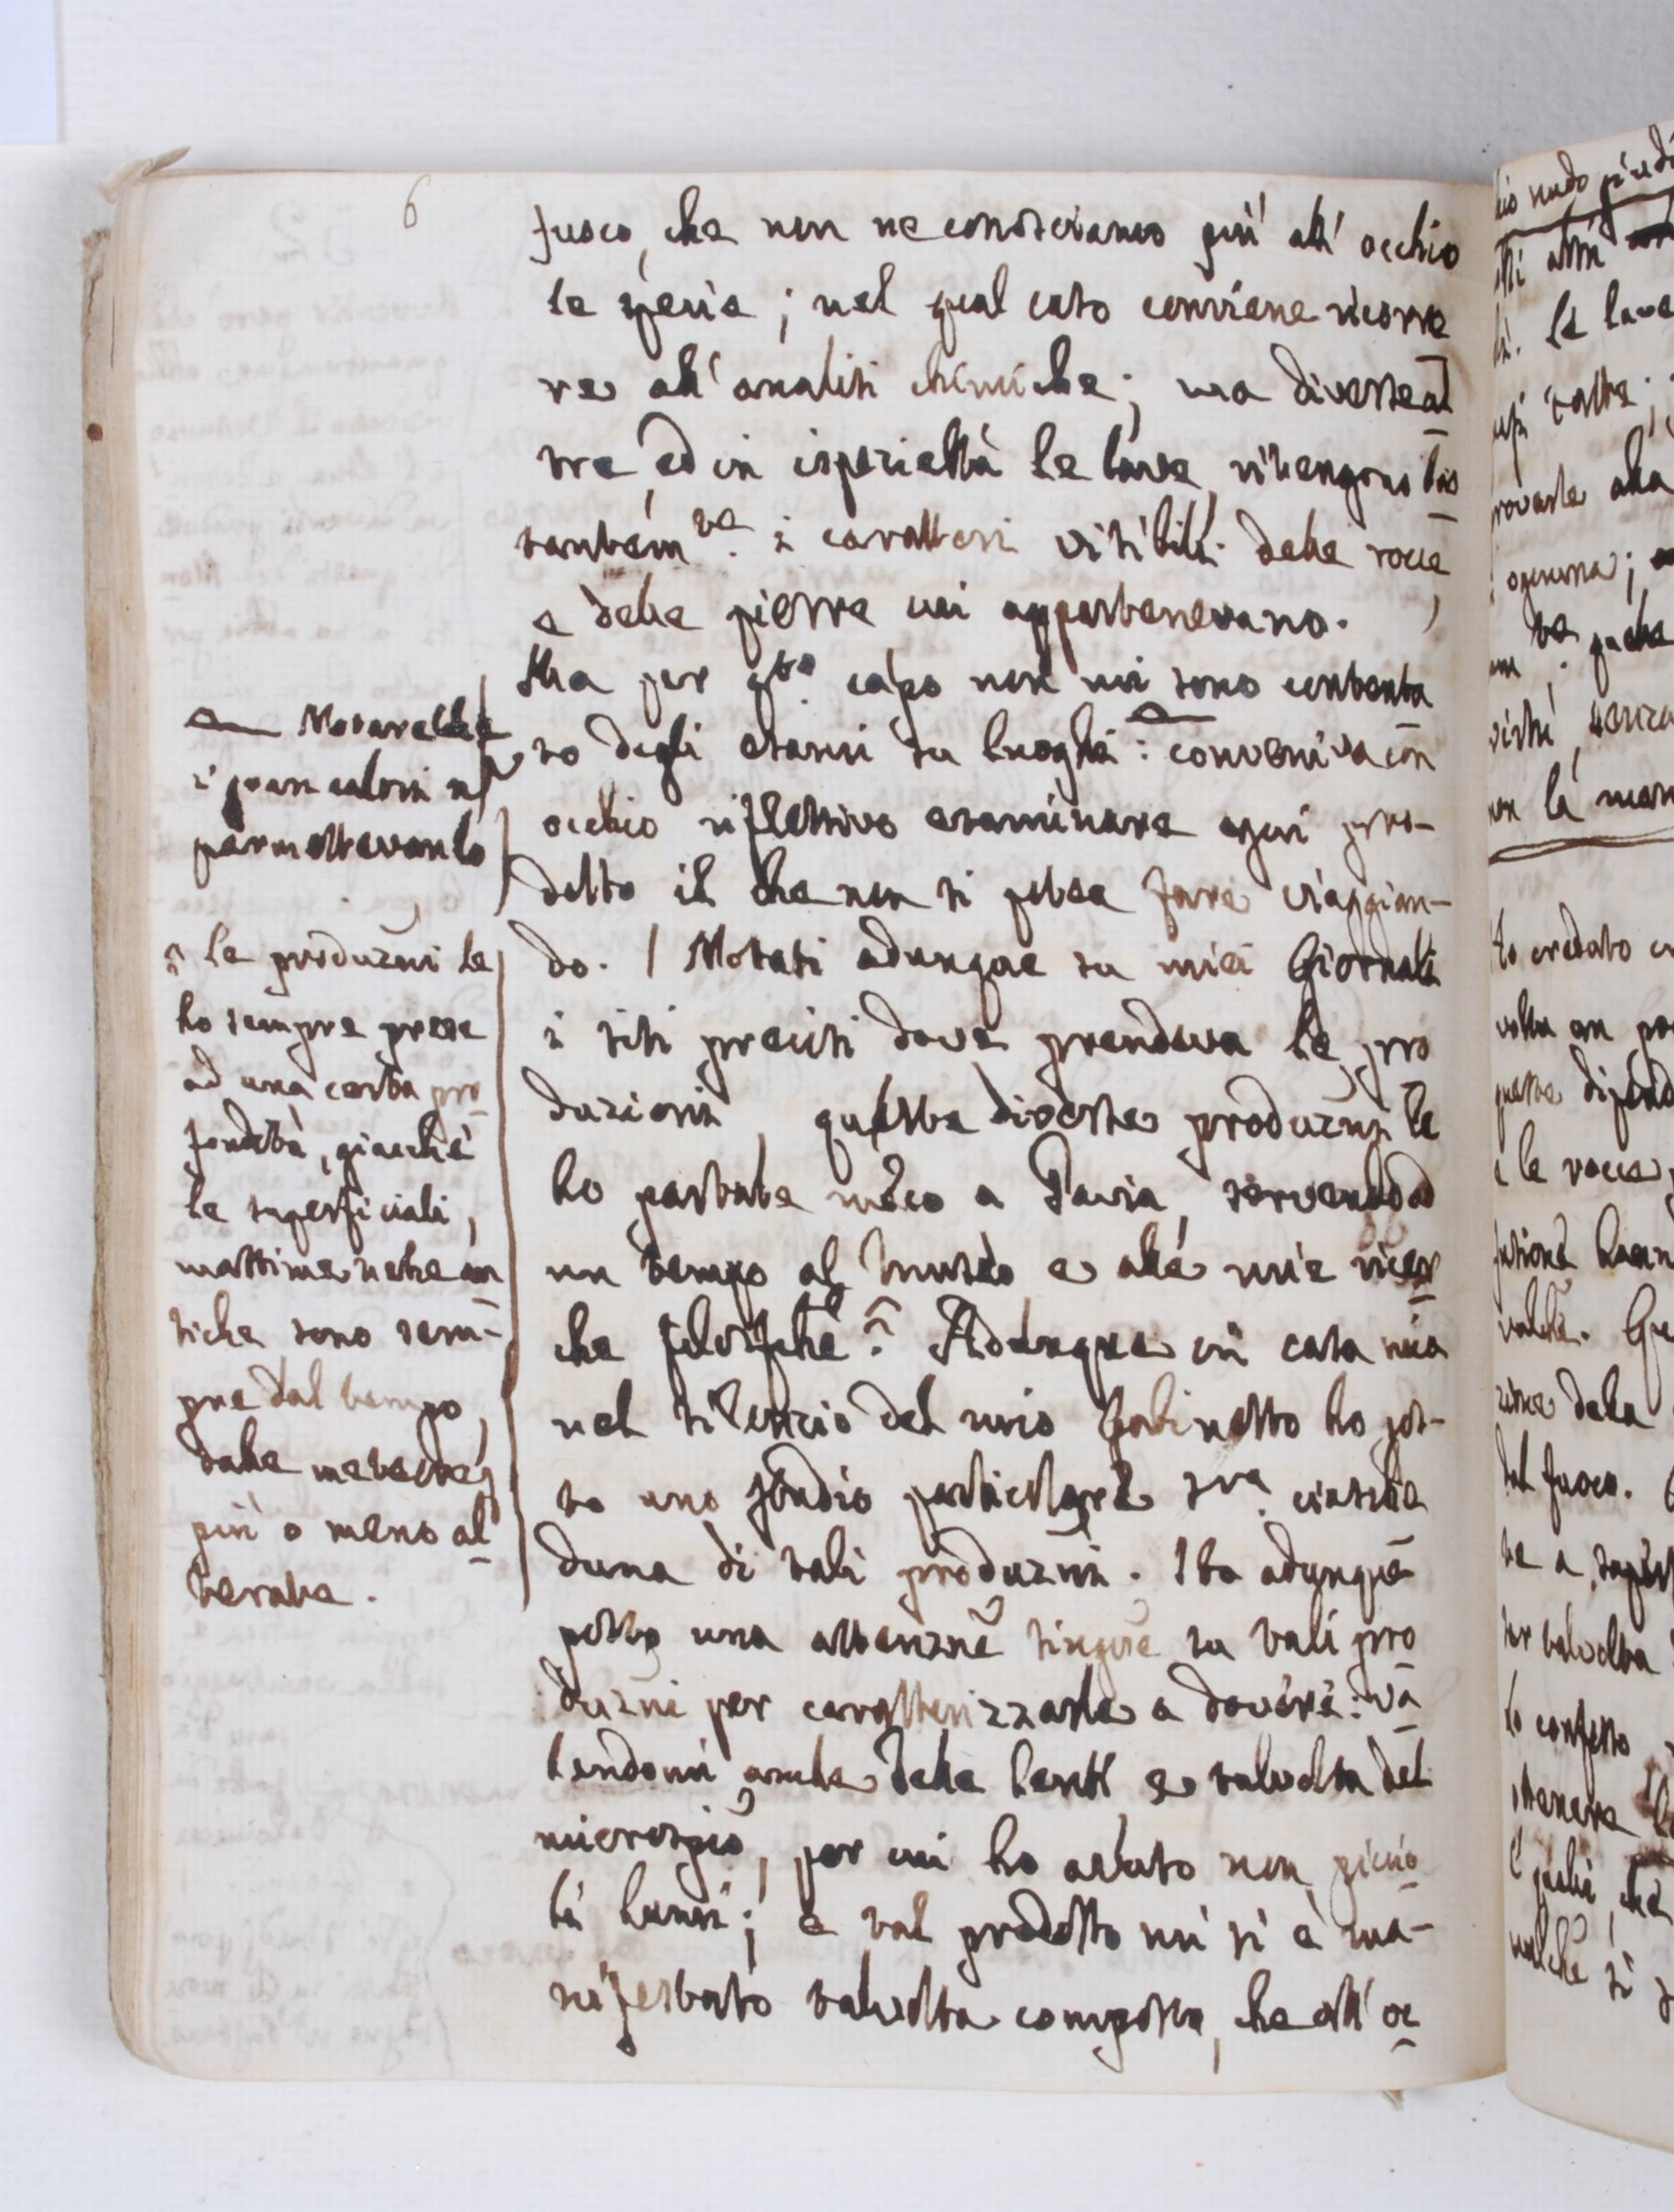 6
fusco, che non ne conosciamo più all'occhio
le specie; nel qual caso conviene ricorre
re all'analisi chimiche; ma diverse al
tre, ed in ispecieltà le lave, ritengono bas
tantem.te i caratteri visibili delle rocce,
e delle pietre cui appartenevano.
Ma per q.to capo non mi sono contenta
to degli esami su luoghi: conveniva con
occhio riflessivo esaminare ogni pro-
dotto il che non si potea fare viaggian-
do. / Notati adunque su miei Giornali
i siti precisi dove prendeva le pro
duzioni, queste diverse produzni le
ho portate meco a Pavia, servendo ad
un tempo al museo e alle mie ricer
che filosfiche. Adunque in casa mia
nel silenzio del mio Gabinetto ho pos-
to uno studio particolare sra ciasche
duna di tali produzni. Ho adunque
posto una attenzne singre su tali pro
duzni per caratterizzarle a dovere: va
lendomi anche delle lenti e talvolta del
microspio, per cui ho avuto non picco
li lumi; e tal prodotto mi si è ma-
nifestato talvolta composto, che all'oc
Notarelle
i pochi calori n
permettevanlo
le produzni le
ho sempre prese
ad una certa pro
fondità, giacchè
le superficiali,
massime nelle an
tiche sono sem-
pre dal tempo,
dalle meteore,
più o meno al
terate.